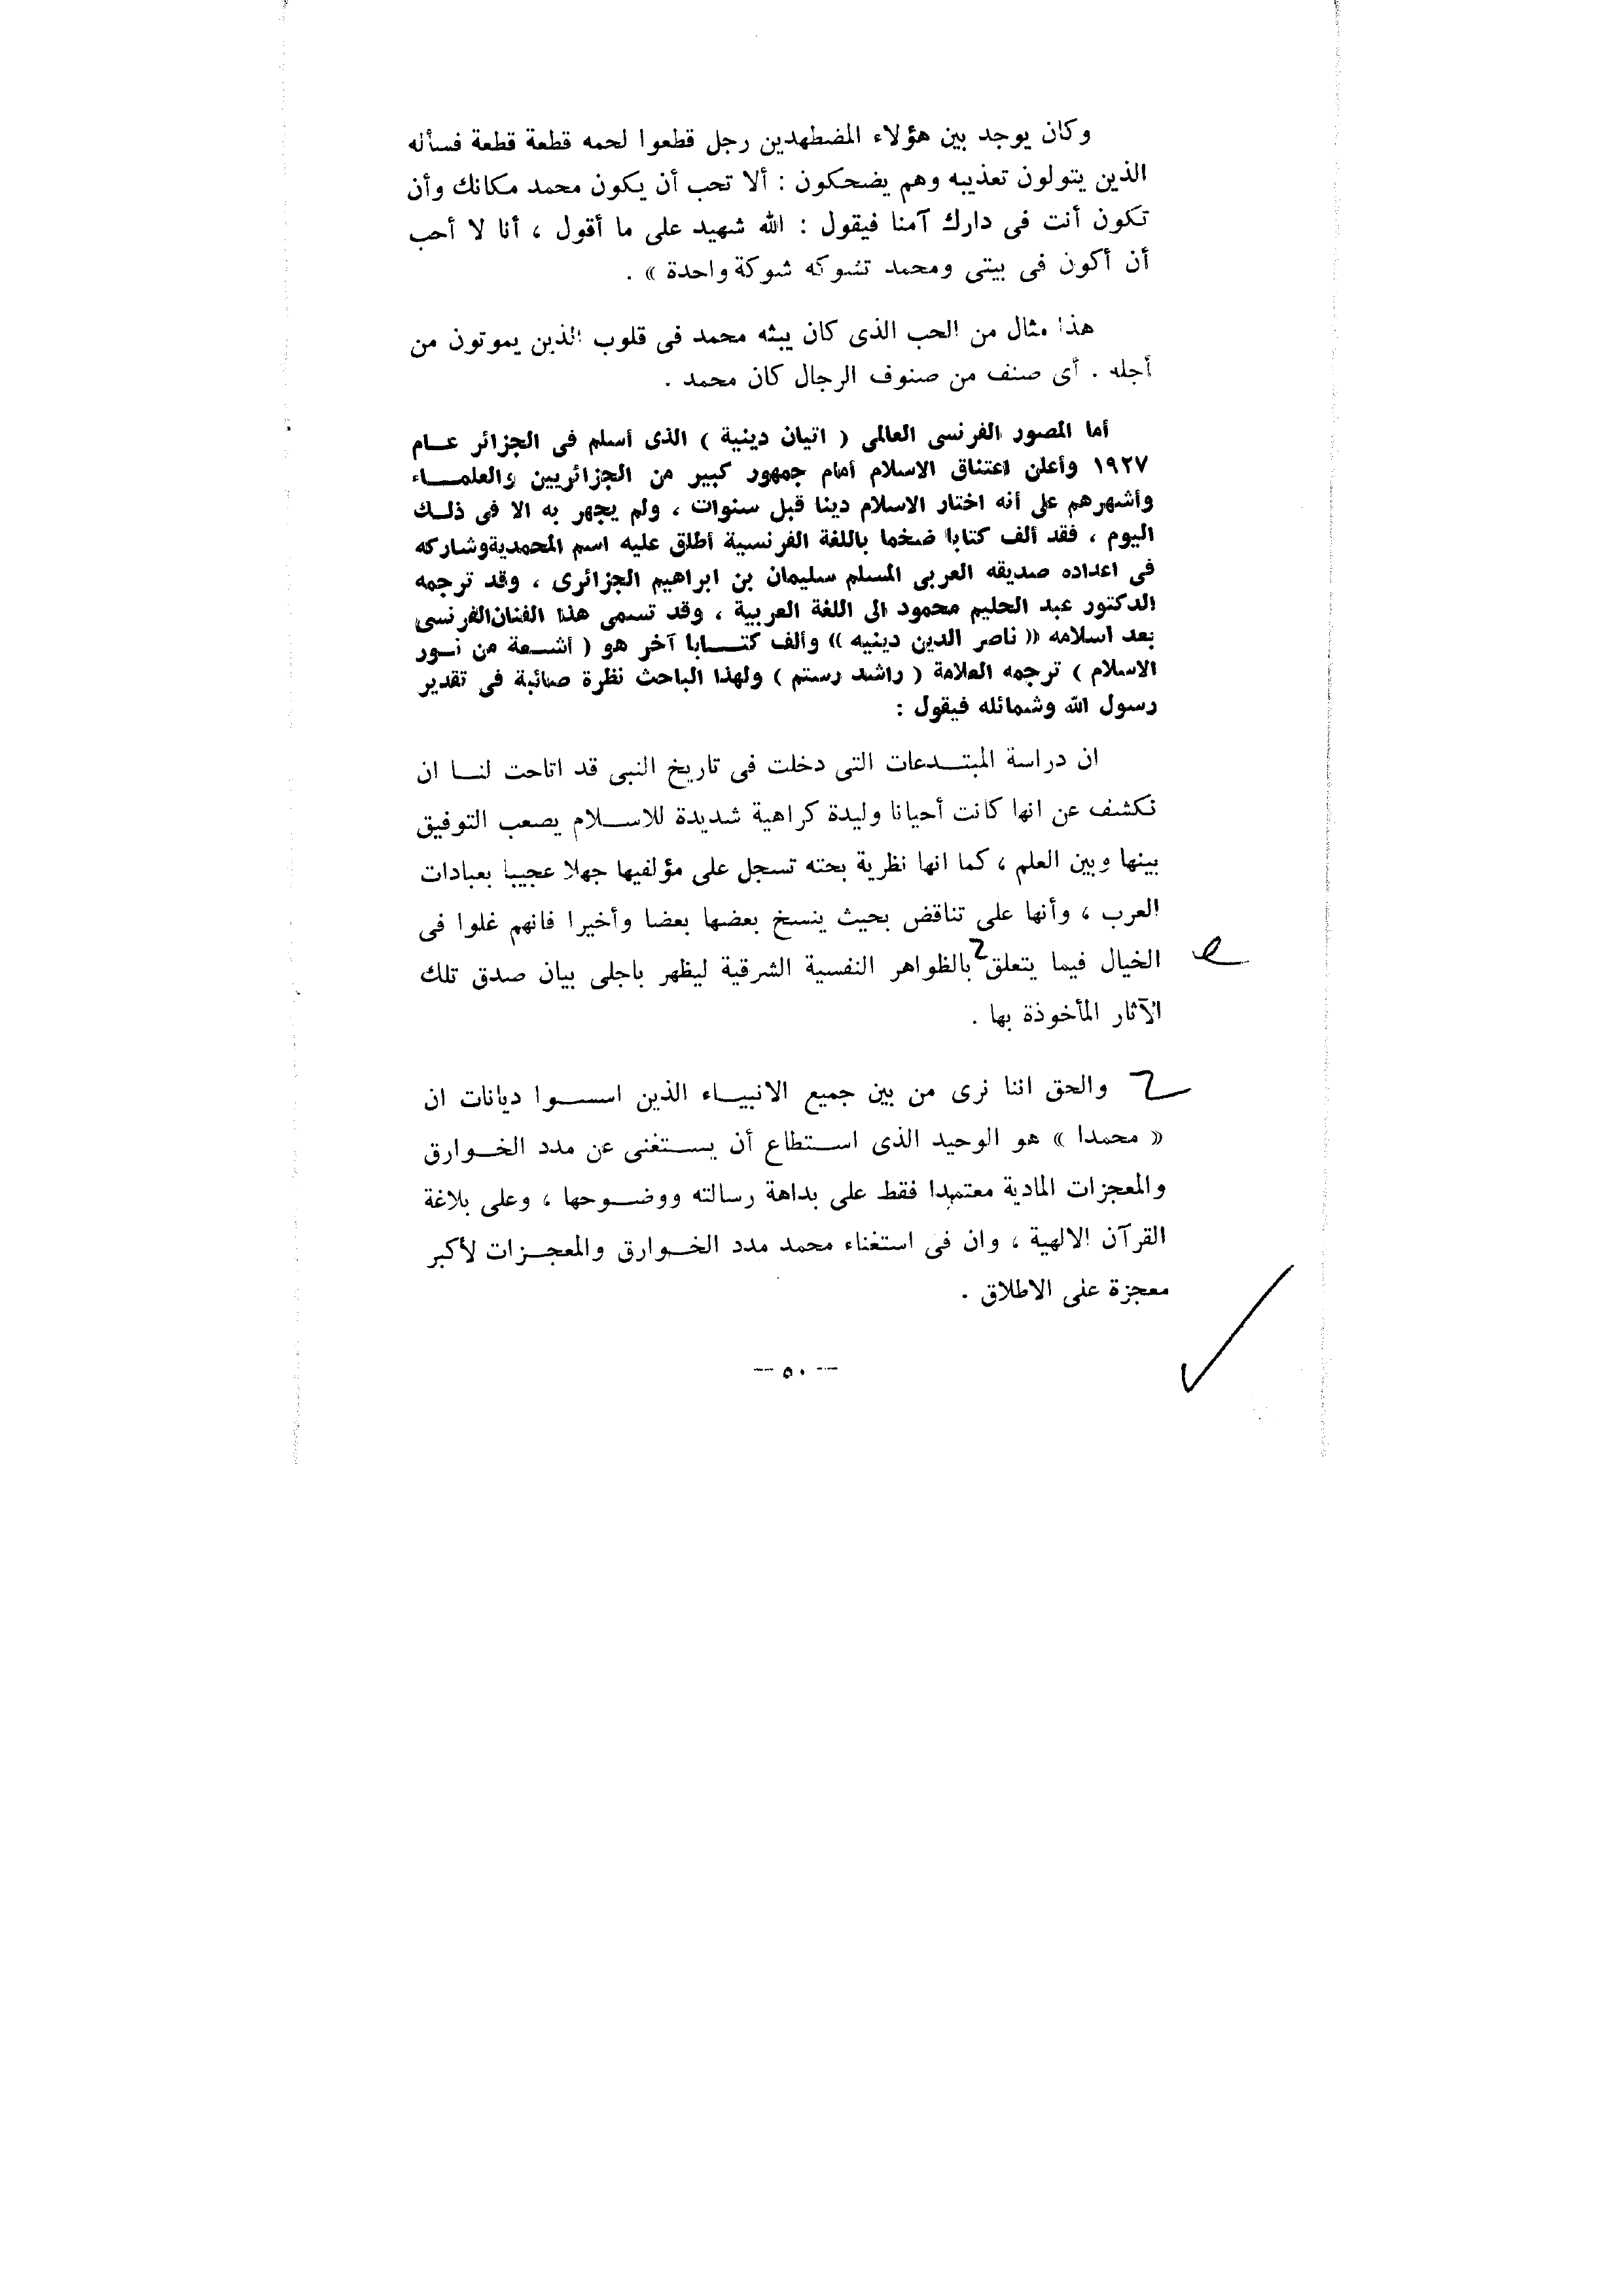 وكان يوجد بين هؤلاء المضطهدين رجل قطعوا لحمه قطعة قطعة فسأله
الذين يتولون تعذيبه وهم يضحكون : ألا تحب أن يكون محمد مكانك وأن
تكون أنت فى دارك آمنا فيقول : الله شهيد على ما أقول ، أنا لا أحب
أن أكون فى بيتى ومحمد تشوكه شوكة واحدة » .
هذا مثال من الحب الذى كان يبثه محمد فى قلوب الذين يموتون من
أجله . أى صنف من صنوف الرجال كان محمد .
أما المصور الفرنسى العالمى ( اتيان دينية ) الذى أسلم فى الجزائر عــام
١٩٢٧ وأعلن اعتناق الاسلام أمام جمهور كبير من الجزائريين والعلمــاء
وأشهرهم على أنه اختار الاسلام دينا قبل سنوات ، ولم يجهر به الا فى ذلــك
اليوم ، فقد ألف كتابا ضخما باللغة الفرنسية أطلق عليه اسم المحمدية وشاركه
فى اعداده صديقه العربى المسلم سليمان بن ابراهيم الجزائرى ، وقد ترجمه
الدكتور عبد الحليم محمود الى اللغة العربية ، وقد تسمى هذا الفنان الفرنسى
بعد اسلامه « ناصر الدين دينيه » وألف كتــابا آخر هو ( أشــعة من نــور
الاسلام ) ترجمه العلامة ( راشد رستم ) ولهذا الباحث نظرة صائبة فى تقدير
رسول الله وشمائله فيقول :
ان دراسة المبتــدعات التى دخلت فى تاريخ النبى قد اتاحت لنــا ان
نكشف عن انها كانت أحيانا وليدة كراهية شديدة للاســلام يصعب التوفيق
بينها وبين العلم ، كما انها نظرية بحته تسجل على مؤلفيها جهلا عجيبا بعبادات
العرب ، وأنها على تناقض بحيث ينسخ بعضها بعضا وأخيرا فانهم غلوا فى
الخيال فيما يتعلق بالظواهر النفسية الشرقية ليظهر باجلى بيان صدق تلك
الآثار المأخوذة بها .
والحق اننا نرى من بين جميع الانبيــاء الذين اسســوا ديانات ان
« محمدا » هو الوحيد الذى اســتطاع أن يســتغنى عن مدد الخــوارق
والمعجزات المادية معتمدا فقط على بداهة رسالته ووضــوحها ، وعلى بلاغة
القرآن الالهية ، وان فى استغناء محمد مدد الخــوارق والمعجــزات لأكبر
معجزة على الاطلاق .
— ٥٠ —